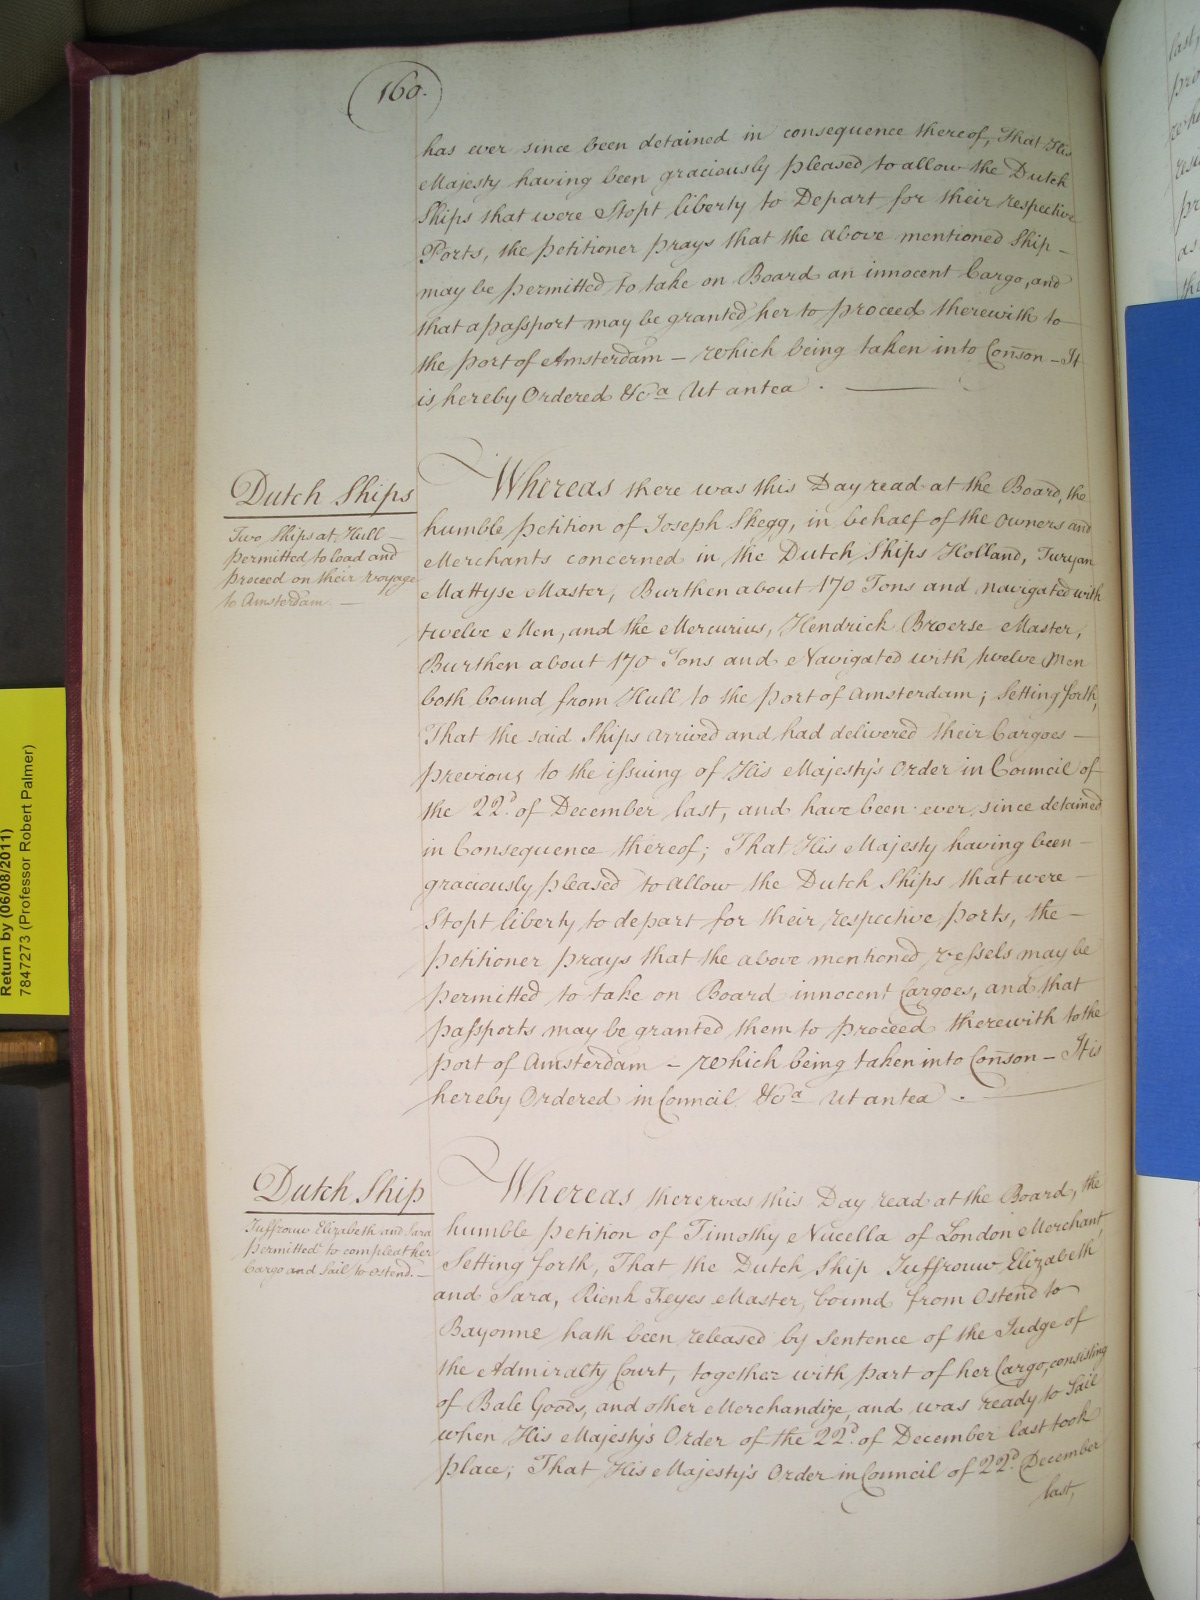 160.
has ever since been detained in consequence thereof, That His
Majesty having been graciously pleased to allow the Dutch
Ships that were Stopt liberty to Depart for their respective
Ports, the petitioner prays that the above mentioned Ship –
may be permitted to take on Board an innocent Cargo, and
that a passport may be granted her to proceed therewith to
the port of Amsterdam – which being taken into Conson – It
is hereby Ordered &ca Ut antea .
Dutch Ships
Two Ships at Hull –
permitted to load and
proceed on their voyage
to Amsterdam. –
Whereas there was this Day read at the Board, the
humble petition of Joseph Skegg, in behalf of the Owners and
Merchants concerned in the Dutch Ships Holland, Juryan
Mattyse Master, Burthen about 170 Tons and navigated with
twelve Men, and the Mercurius, Hendrick Broerse Master,
Burthen about 170 Tons and Navigated with twelve Men
both bound from Hull to the port of Amsterdam; Setting forth,
That the said Ships arrived and had delivered their Cargoes –
previous to the issuing of His Majesty's Order in Council of
the 22d. of December last, and have been ever since detained
in Consequence thereof; That His Majesty having been –
graciously pleased to allow the Dutch Ships that were –
Stopt liberty to depart for their respective ports, the –
petitioner prays that the above mentioned vessels may be
permitted to take on Board innocent Cargoes, and that
passports may be granted them to proceed therewith to the
port of Amsterdam – which being taken into Conson – It is
hereby Ordered in Council &ca Ut antea .
Dutch Ship
Juffrouw Elizabeth and Sara
permitted to compleat her
Cargo and Sail to Ostend. –
Whereas there was this Day read at the Board, the
humble petition of Timothy Nucella of London Merchant,
Setting forth, That the Dutch Ship Juffrouw Elizabeth
and Sara, Rienk Feyes Master, bound from Ostend to
Bayonne hath been released by Sentence of the Judge of
the Admiralty Court, together with part of her Cargo, consisting
of Bale Goods, and other Merchandize, and was ready to Sail
when His Majesty's Order of the 22d. of December last took
place; That His Majesty's Order in Council of 22d. December
last,
Return by (06/08/2011)
7847273 (Professor Robert Palmer)